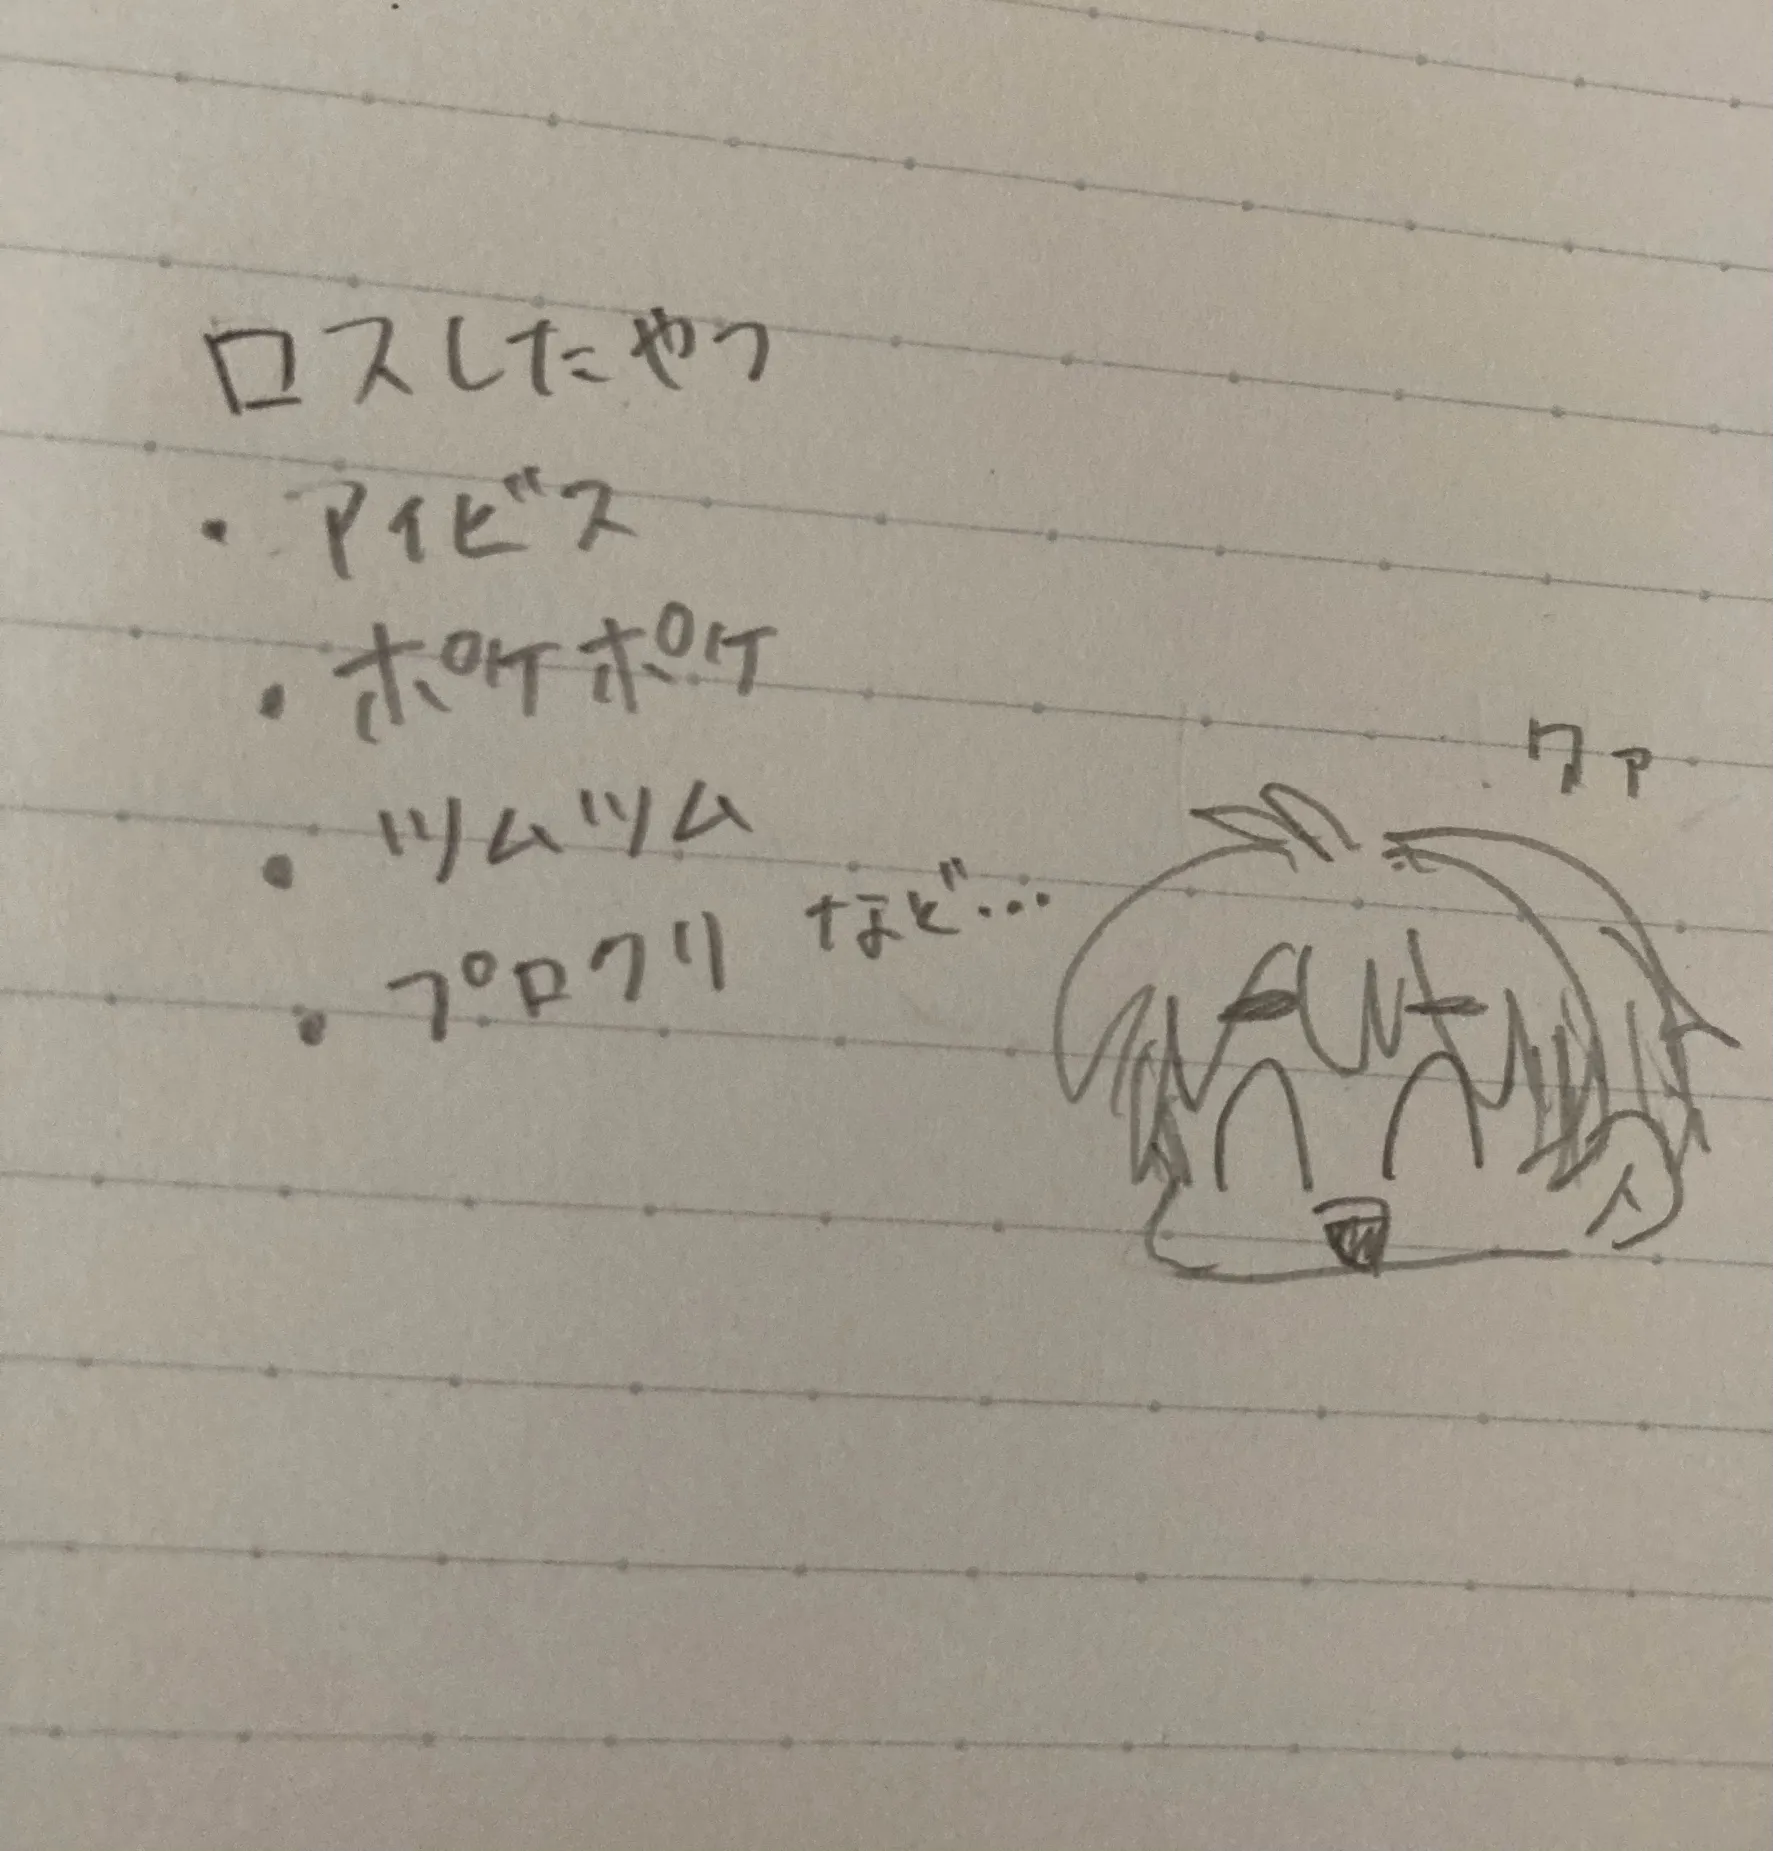 ロスしたやつ
・アイビス
・ポケポケ
・ツムツム
・プロクリ など…
クァ